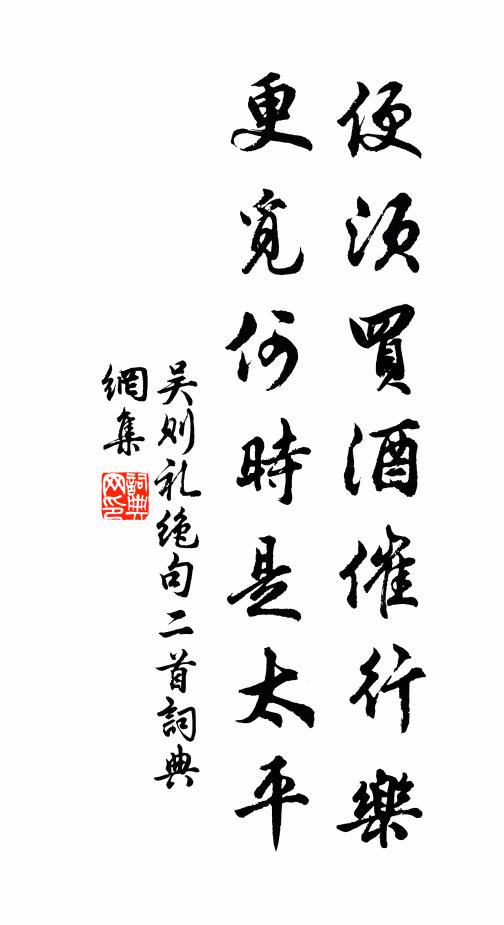 便須買酒催行樂
更覓何時是太平
吴则礼绝句二首詞典
網集
詞典
网印